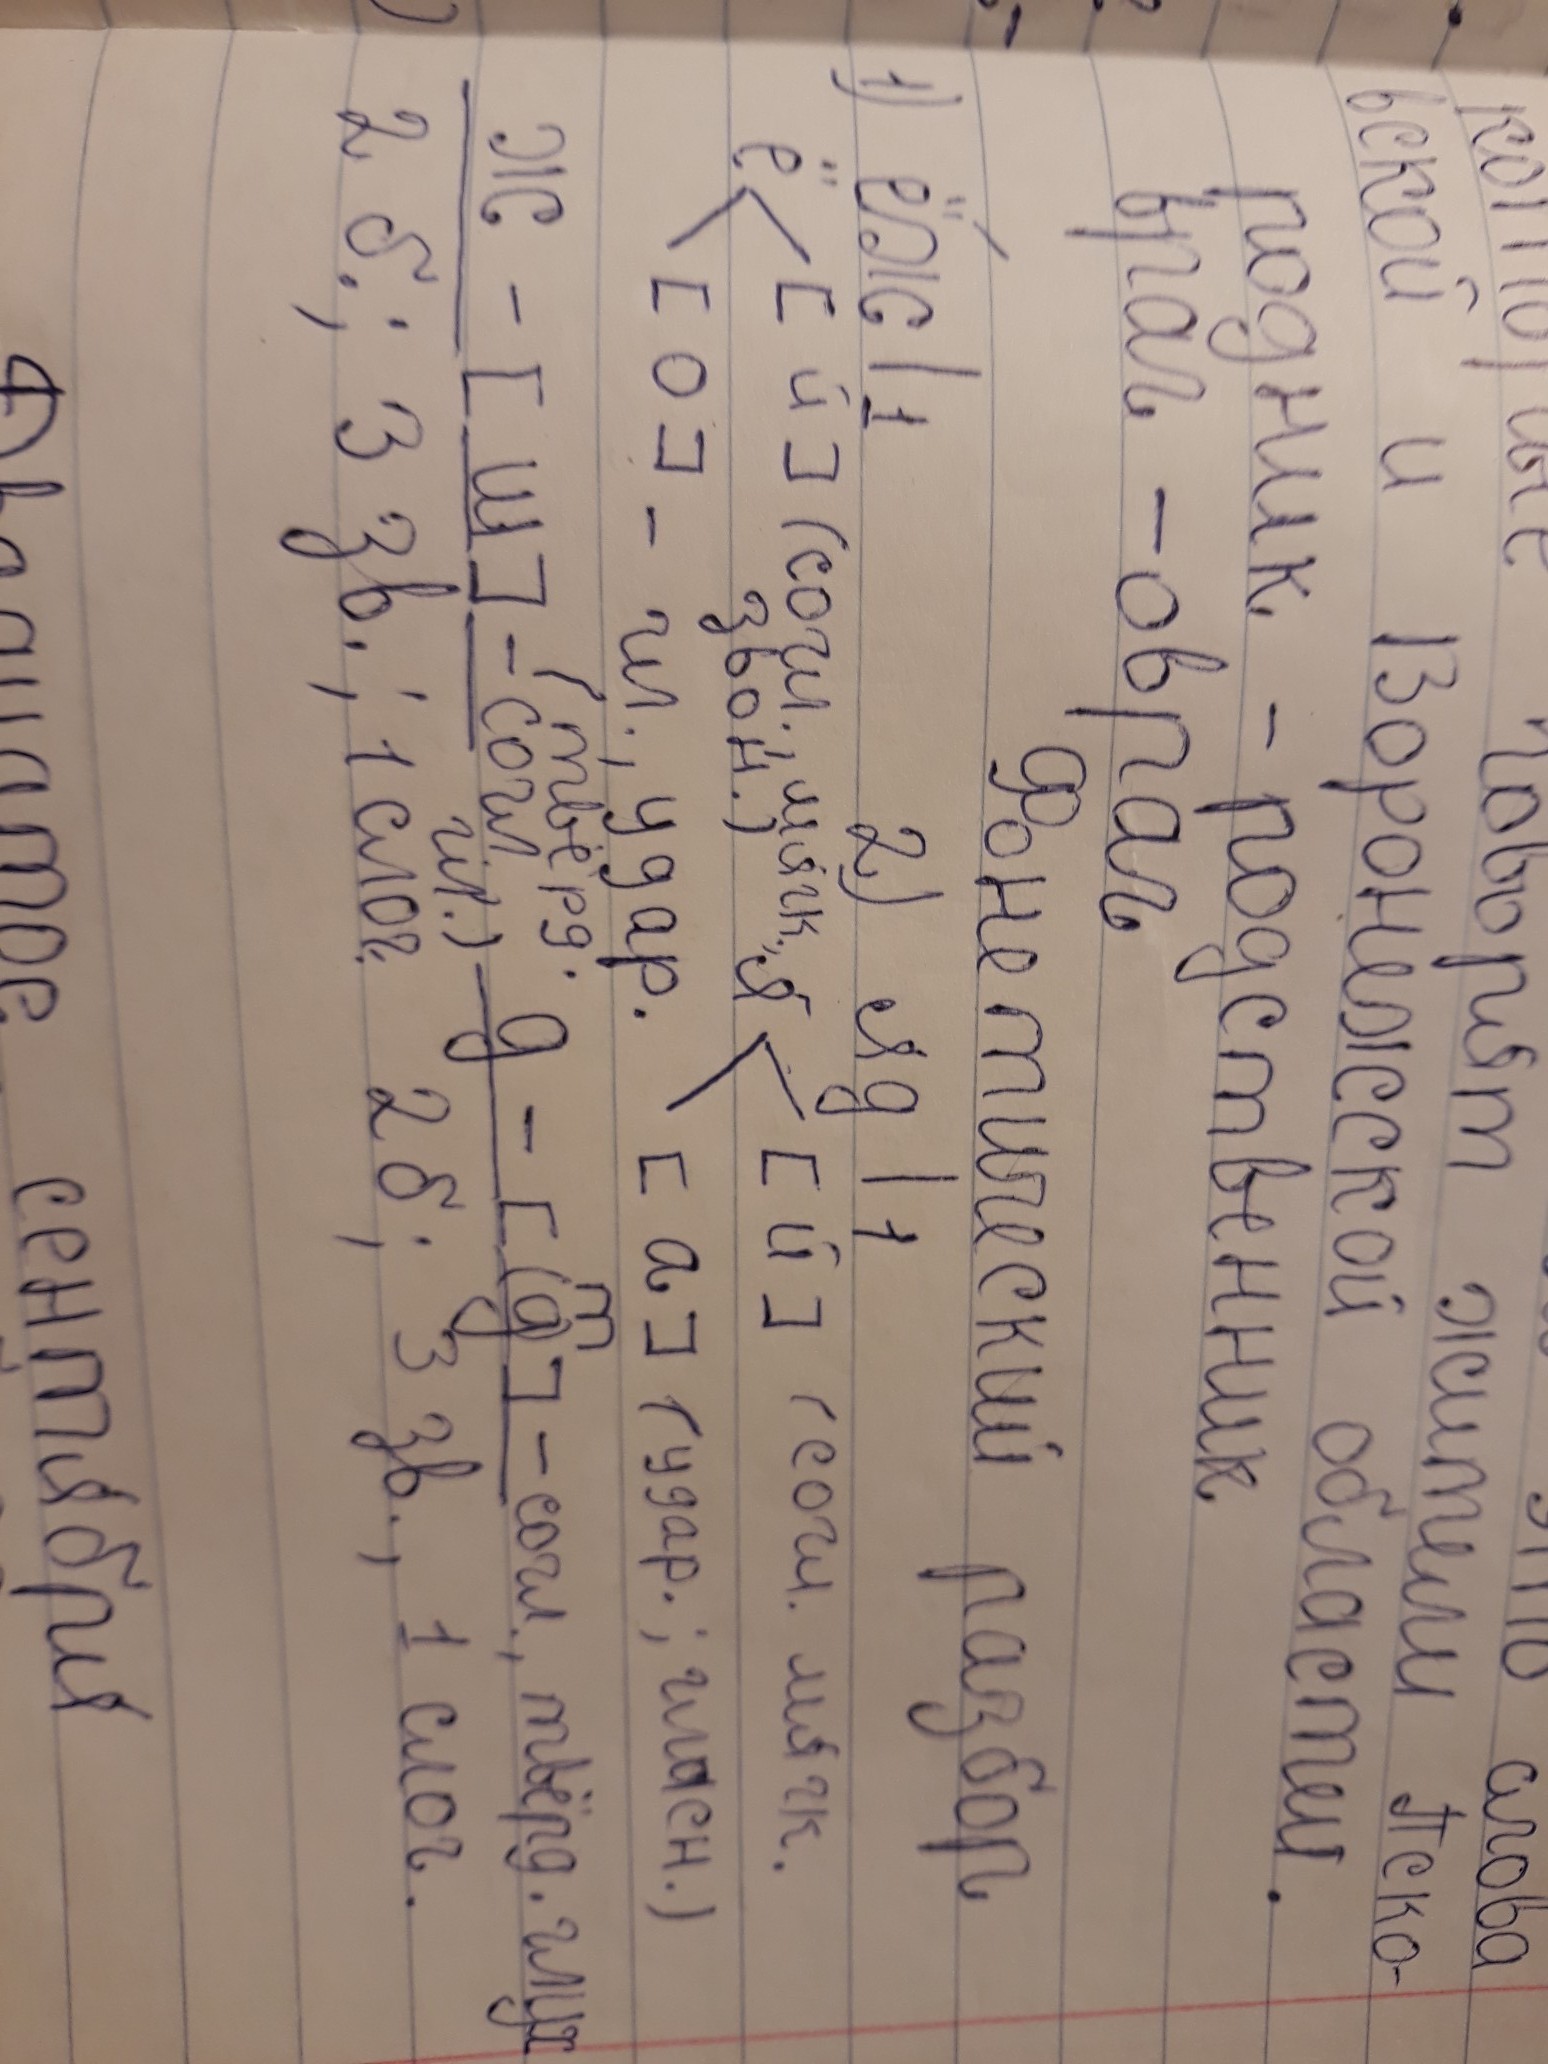 которые говорят жители Пско-
вской и Воронежской области.
родник - родственник
враг - овраг
Фонетический разбор
1) ёж|1 2) яд|1
ё < [й] (согл., мягк., звон.) я < [й] (согл. мягк.
[о] - гл., удар. [а] (удар.; гласн.)
ж - [ш] - согл (твёрд. гл.) д - [(д) т] - согл., твёрд. глух
2 б.; 3 зв.; 1 слог. 2 б; 3 зв., 1 слог.
сентября